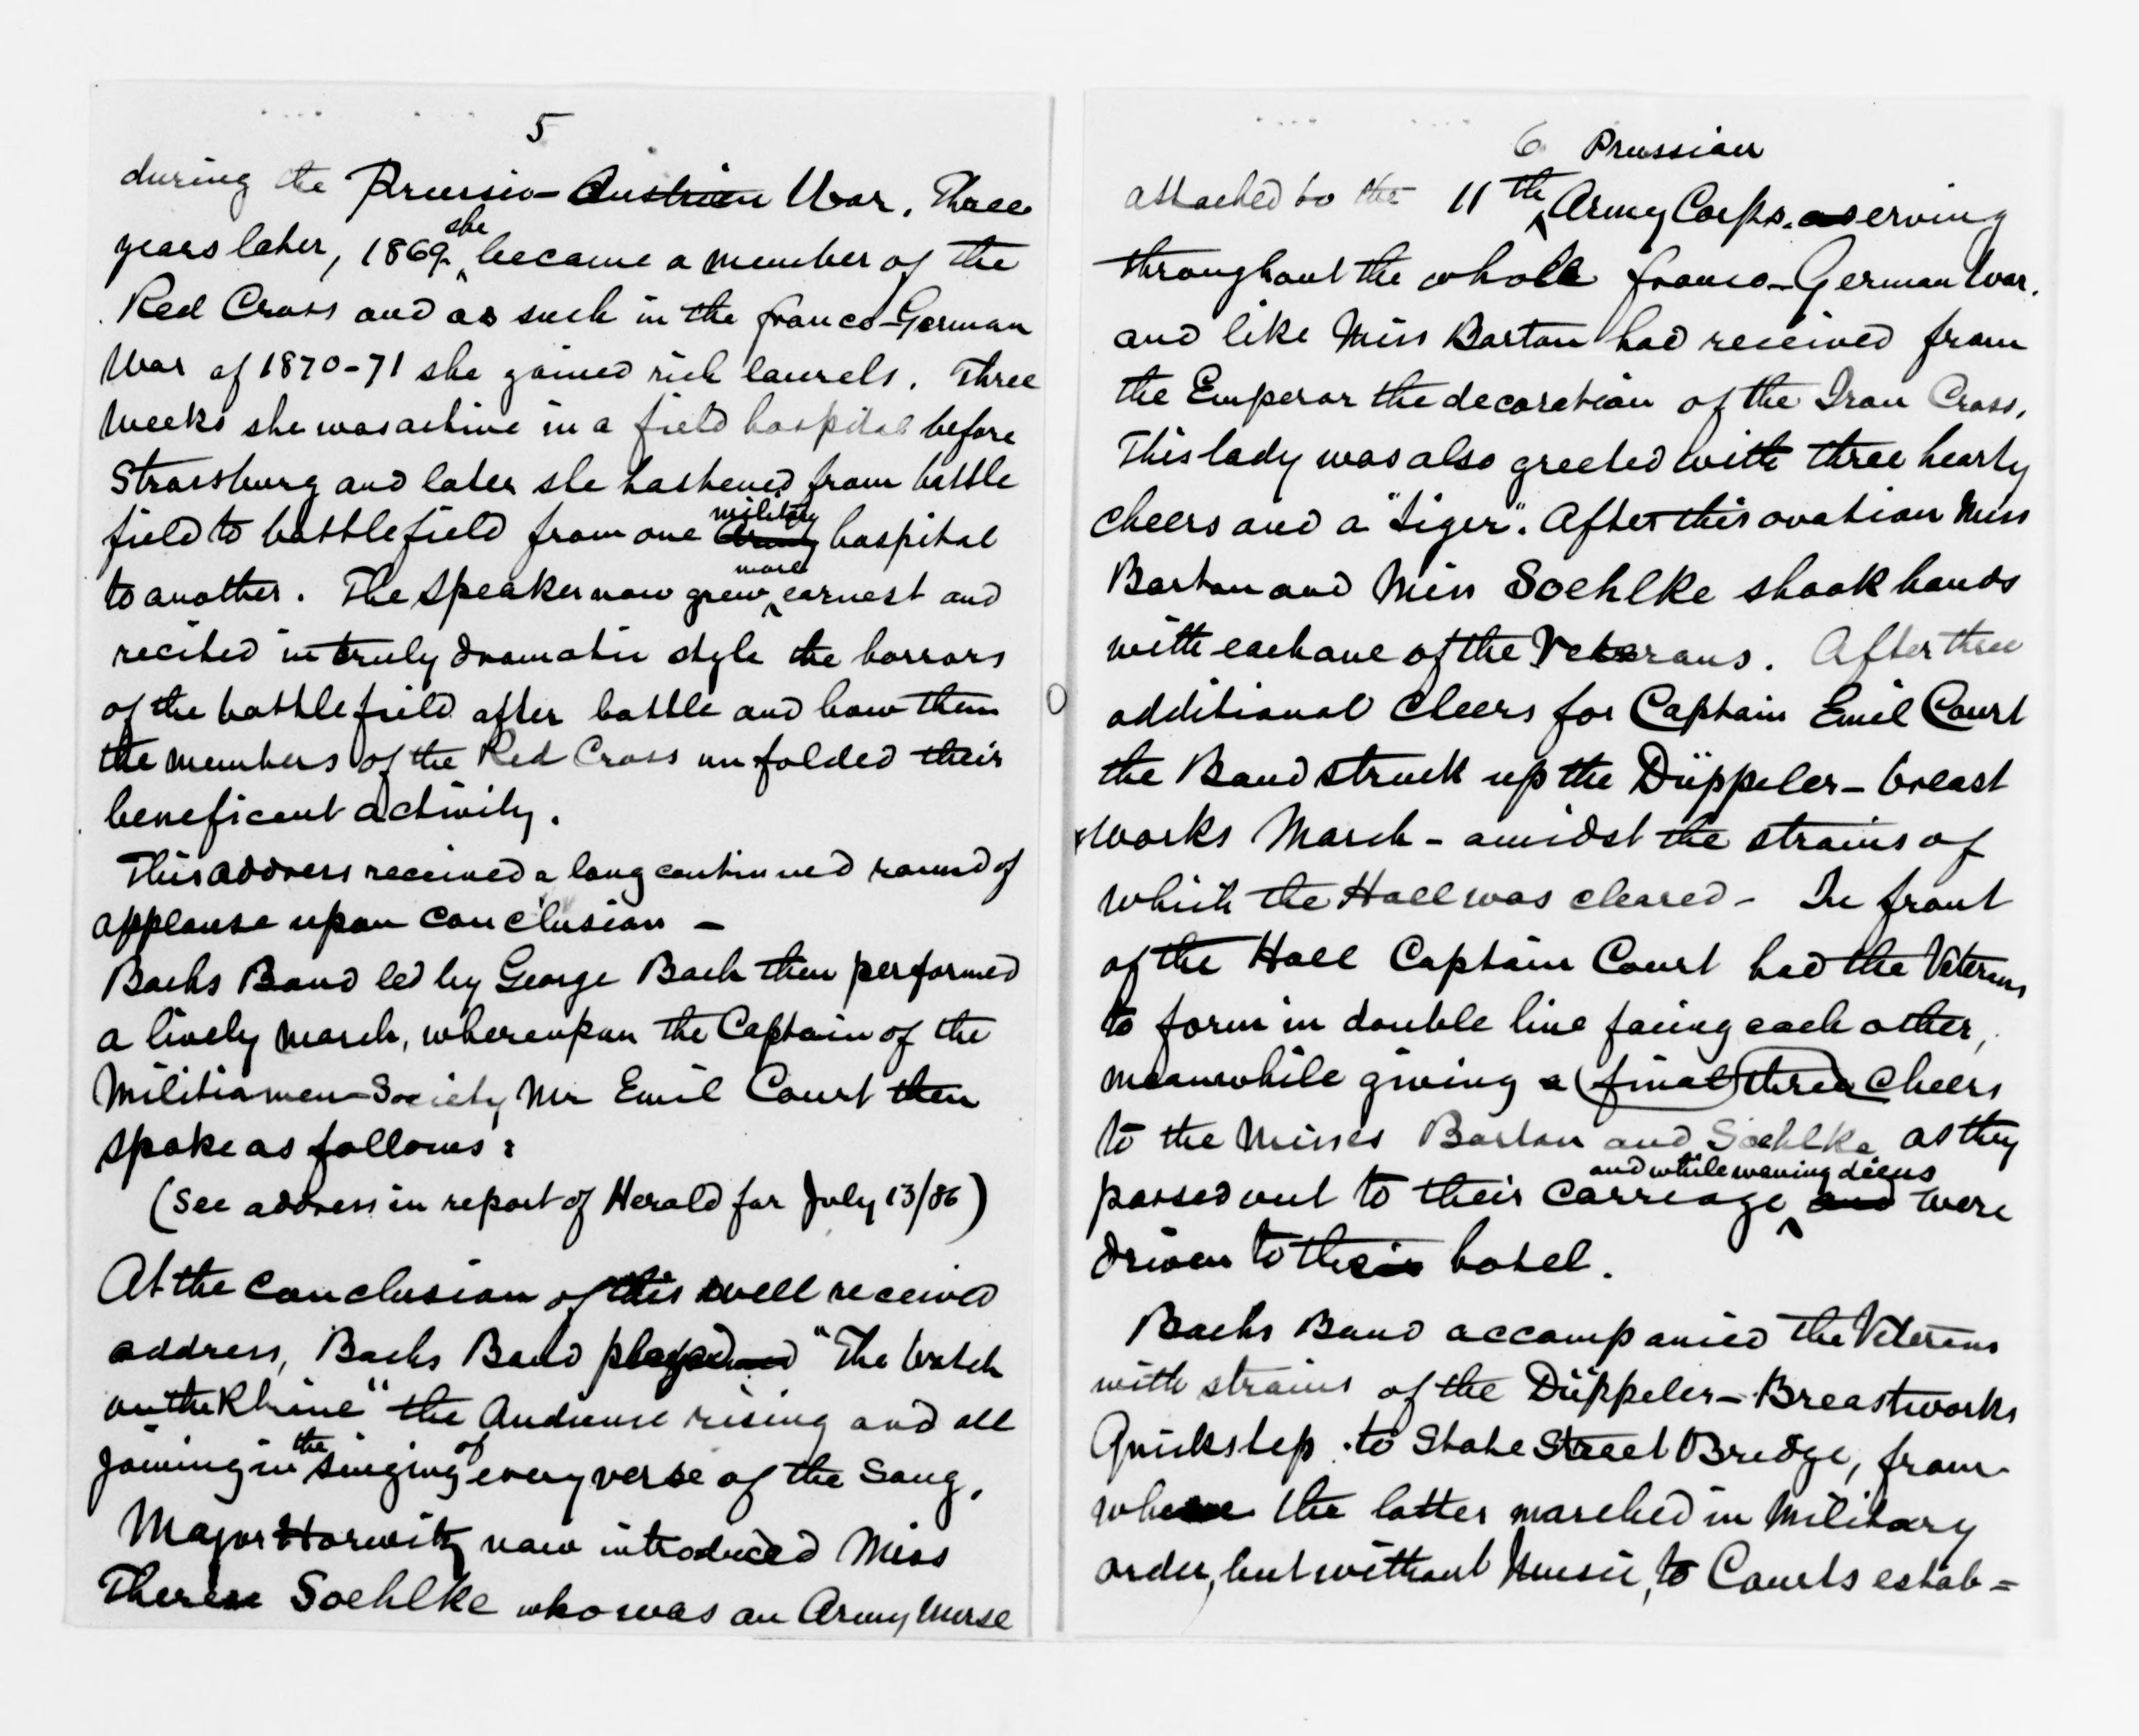 5
during the Prussio-Austrian War. Three
years later, 1869, she became a member of the
Red Cross and as such in the franco-German
War of 1870-71 she gained rich laurels. Three
weeks she was active in a field hospital before
Strassburg and later she hastened from battle
field to battlefield from one Army military hospital
to another. The speaker now grew more earnest and
recited in truly dramatic style the horrors
of the battlefield after battle and how then
the members of the Red Cross unfolded their
beneficent activity.
This address received a long continued round of
applause upon conclusion -
Bachs Band led by George Bach then performed
a lively march, whereupon the Captain of the
Militiamen-Society Mr Emil Court then
spoke as follows:
(See address in report of Herald for July 13/86)
At the conclusion of this well received
address, Bachs Band played "The watch
on the Rhine" the Audience rising and all
joining in the singing of every verse of the Song.
Major Horwitz now introduced Miss
Therese Soehlke who was an Army nurse
6
attached to the 11th Prussian Army Corps. serving
throughout the whole franco-German War.
and like Miss Barton had received from
the Emperor the decoration of the Iron Cross.
This lady was also greeted with three hearty
cheers and a "tiger". After this ovation Miss
Barton and Miss Soehlke shook hands
with each one of the Veterans. After three
additional cheers for Captain Emil Court
the Band struck up the Düppeler-breast
works March - amidst the strains of
which the Hall was cleared - In front
of the Hall Captain Court had the Veterans
to form in double line facing each other,
meanwhile giving a (final) three cheers
to the Misses Barton and Soehlke as they
passed out to their carriage and and while waving adieus were
driven to their hotel.
Bachs Band accompanied the Veterans
with strains of the Düppeler-Breastworks
Quickstep to State Street Bridge, from
where the latter marched in Military
order, but without Music, to Courts estab=